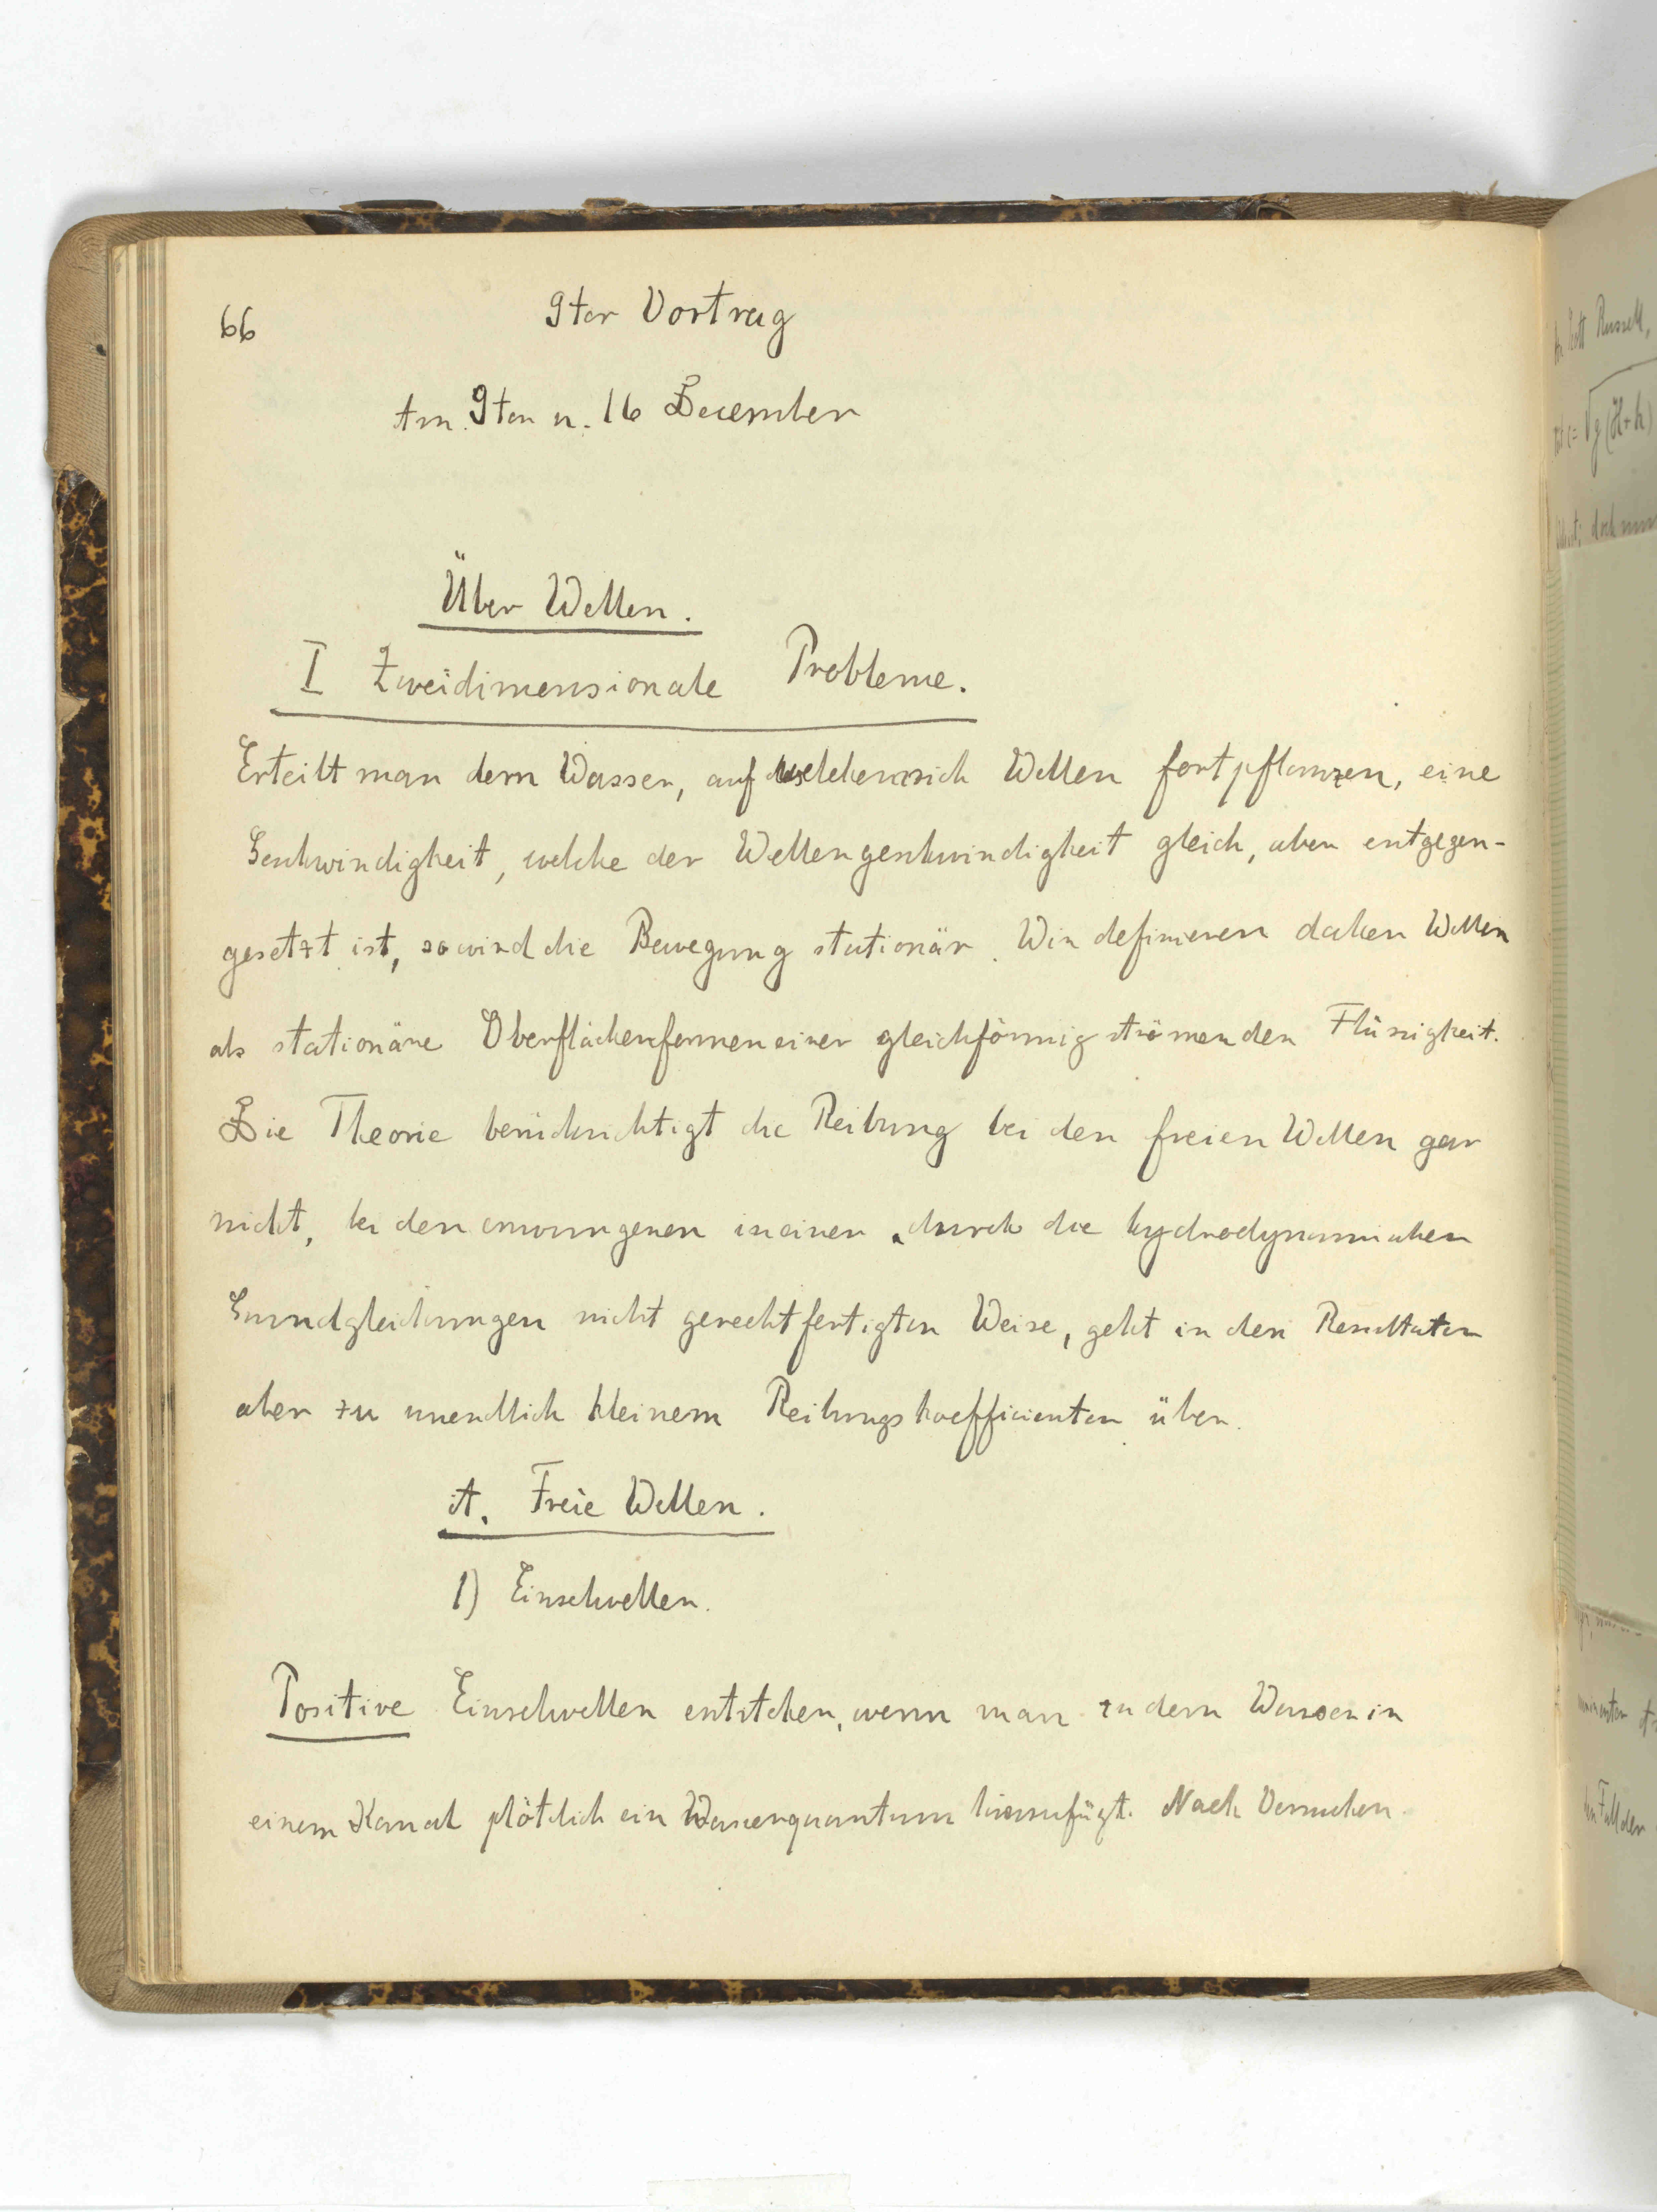 66
9ter Vortrag
Am 9ten u. 16 December
Über Wellen.
I Zweidimensionale Probleme.
Erteilt man dem Wasser, auf welchem sich Wellen fortpflanzen, eine
Geschwindigkeit, welche der Wellengeschwindigkeit gleich, aber entgegen-
gesetzt ist, so wird die Bewegung stationär. Wir definieren daher Wellen
als stationäre Oberflächenformen einer gleichförmig strömenden Flüssigkeit.
Die Theorie berücksichtigt die Reibung bei den freien Wellen gar
nicht, bei den erzwungenen in einer, durch die hydrodynamischen
Grundgleichungen nicht gerechtfertigten Weise, geht in den Resultaten
aber zu unendlich kleinem Reibungskoefficienten über.
A. Freie Wellen.
1) Einzelwellen.
Positive Einzelwellen entstehen, wenn man zu dem Wasser in
einem Kanal plötzlich ein Wasserquantum hinzufügt. Nach Versuchen
Scott Russell,
c = √g(H+h)
doch
Fall der